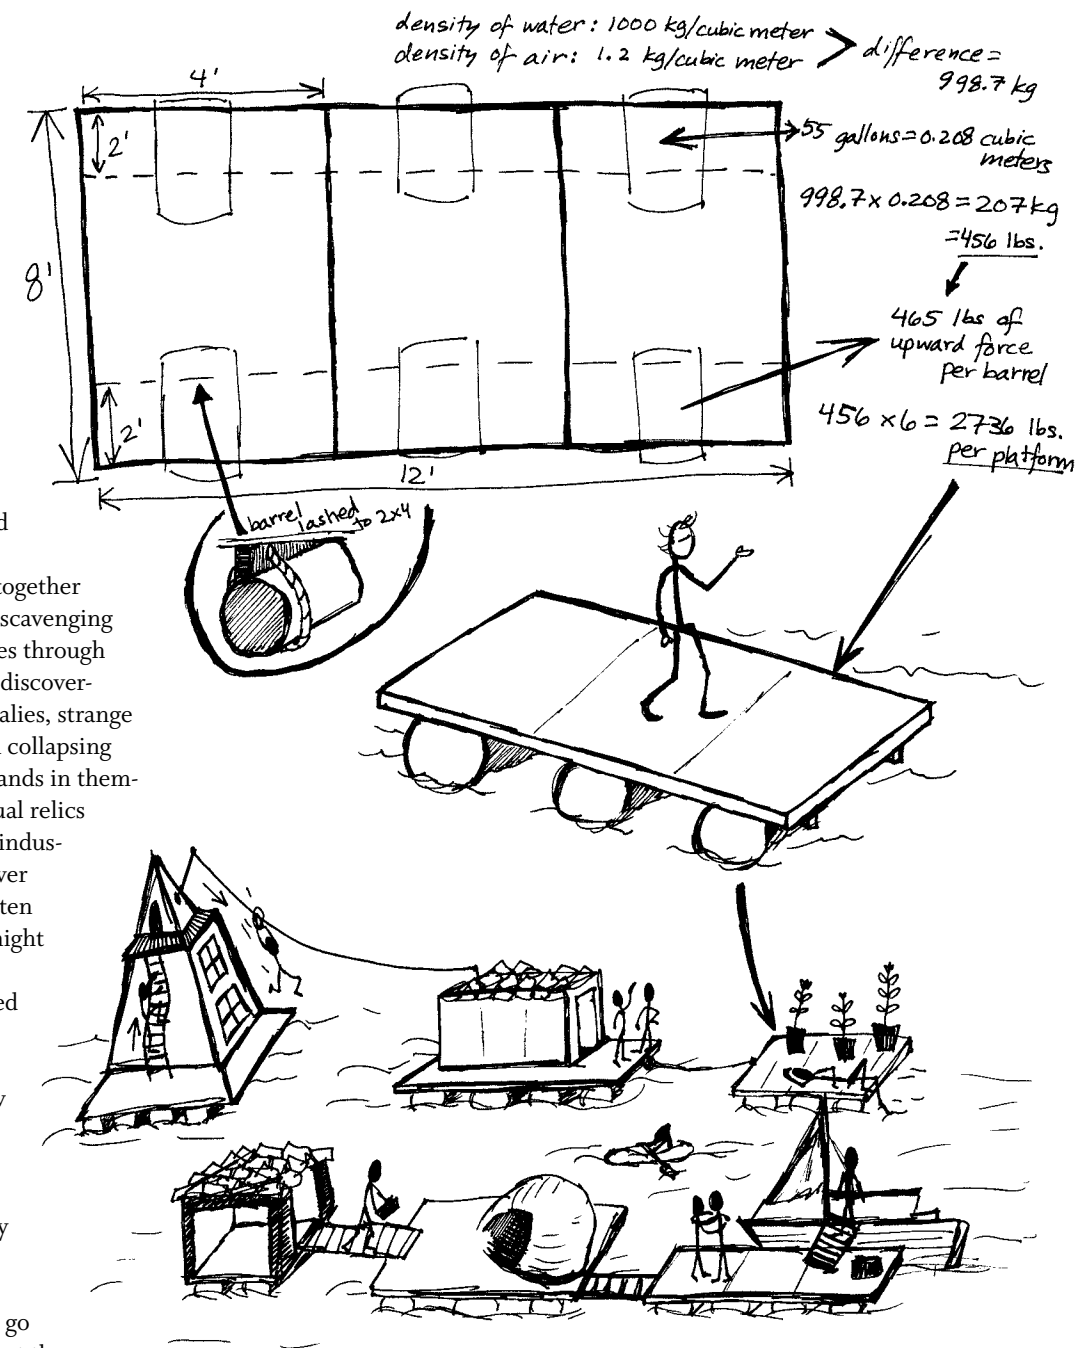 density of water: 1000 kg/cubic meter
density of air: 1.2 kg/cubic meter
difference=
998.7 kg
4'
2'
8'
55 gallons=0.208 cubic
meters
998.7x0.208=207kg
=456 lbs.
465 lbs of
upward force
per barrel
456 x6 = 2736 lbs.
per platform
2'
12'
barrel lashed
to 2x4
d
together
scavenging
es through
discover-
alies, strange
collapsing
ands in them-
ual relics
indus-
ver
ten
ight
ed
y
y
go